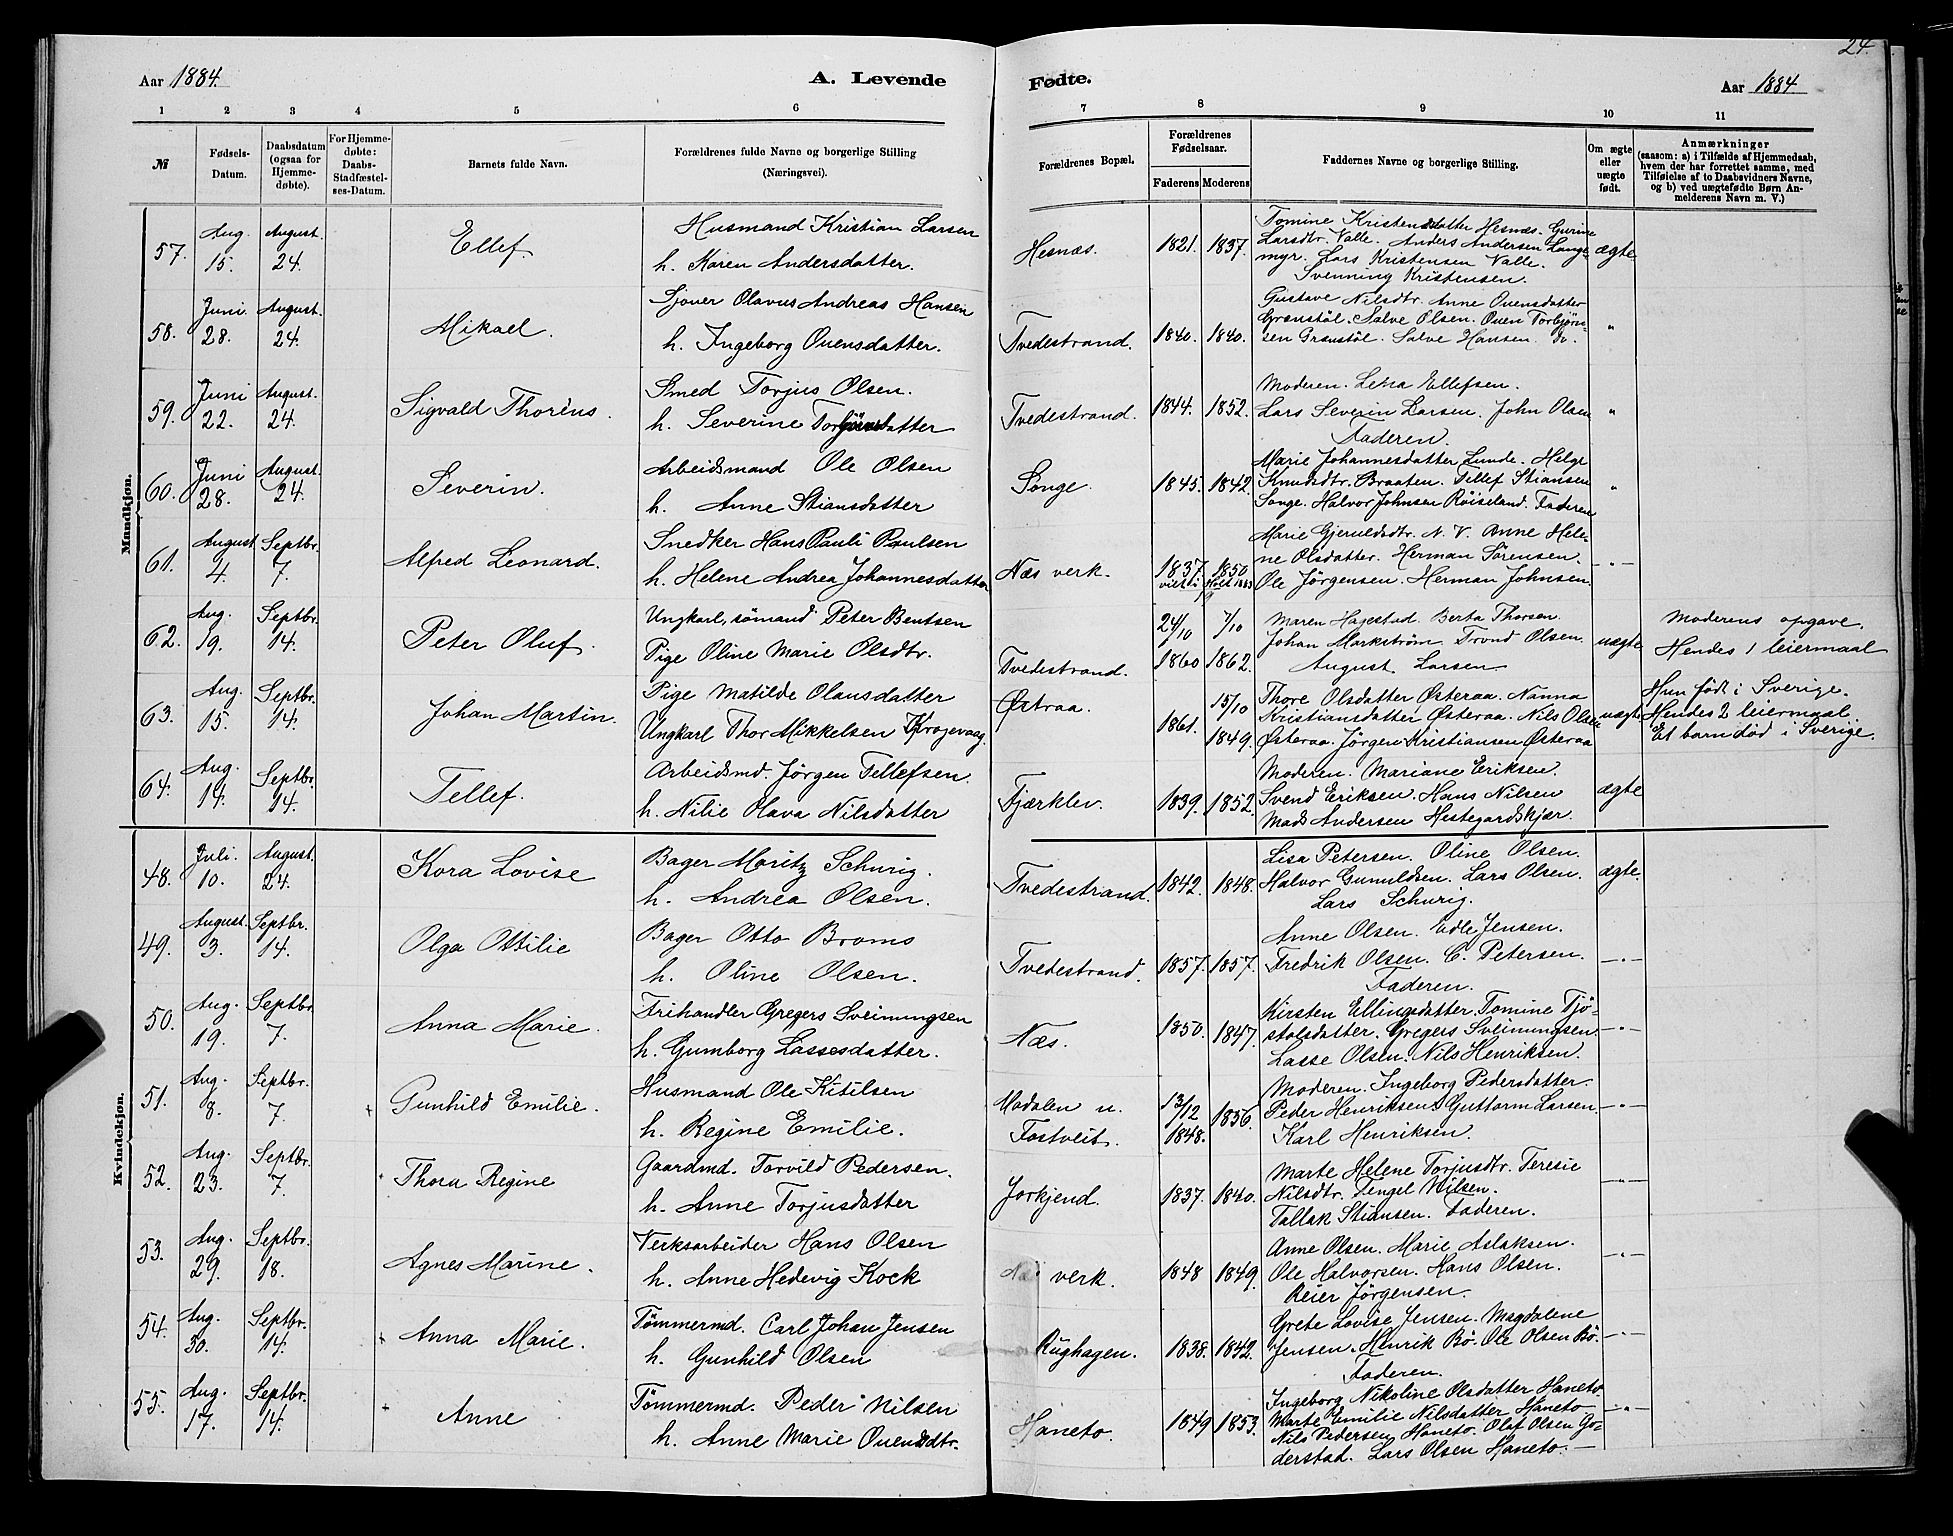 24.
Aar 1884.
A. Levende
Fødte.
Aar 1884.
1 2 3 4 5 6
7 8 9 10 11
№
Fødsels-Datum.
Daabsdatum (ogsaa for Hjemme-døbte).
For Hjemme-døbte: Daabs-Stadfæstel-ses-Datum.
Barnets fulde Navn.
Forældrenes fulde Navne og borgerlige Stilling (Næringsvei).
Forældrenes Bopæl.
Forældrenes Fødselsaar.
Faderens Moderens
Faddernes Navne og borgerlige Stilling.
Om ægte eller uægte født.
Anmærkninger
(saasom: a) i Tilfælde af Hjemmedaab,
hvem der har forrettet samme, med
Tilføielse af to Daabsvidners Navne,
og b) ved uægtefødte Børn An-
melderens Navn m. V.)
Mandkjøn.
57. Aug. 15. August. 24. Ellef. Husmand Kristian Larsen
h. Karen Andersdatter.
Hesnæs. 1821. 1837. ægte
Tomine Kristensdatter Hesnæs. Gurine
Larsdtr. Valle. Anders Andersen Lange-
myr. Lars Kristensen Valle.
Svenning Kristensen.
58. Juni 28. August. 24. Mikael. Sjøver Olavus Andreas Hansen
h. Ingeborg Ouensdatter.
Tvedestrand. 1840. 1840. "
Gustave Nilsdtr. Anne Ouensdatter
Grønstöl. Salve Olsen. Ouen Torbjørn-
sen Grønstöl. Salve Hansen. do.
59. Juni 22. August. 24. Sigvald Thorius. Smed Torjus Olsen.
h. Severine datter
Tvedestrand. 1844. 1852. "
Moderen. Lena Ellefsen.
Lars Severin Larsen. John Olsen
Faderen.
60. Juni 28. August. 24. Severin. Arbeidsmand Ole Olsen
h. Anne Stiansdatter
Songe. 1845. 1842. "
Marie Johannesdatter Lunde. Helge
Knudsdtr. Braaten. Tellef Stiansen
Songe. Halvor Johnsen Röiseland. Faderen
61. August 4. Septbr. 7. Alfred Leonard. Snedker Hans Pauli Paulsen
h. Helene Andrea Johannesdatter
Næs verk. 1837. 1850. viet i Holt 1883 — " —
Marie Gjeruldsdtr. N. V. Anne Hele-
ne Olsdatter. Herman Sørensen.
Ole Jörgensen. Herman Johnsen.
62. Aug. 19. Septbr. 14. Peter Oluf. Ungkarl, sömand Peter Bentsen
Pige Oline Marie Olsdtr.
Tvedestrand. 24/10 1860 7/10 1862. uægte
Maren Hagestad. Berta Thorsen.
Johan Markström. Trond Olsen.
August Larsen
Moderens opgave.
Hendes 1 leiermaal
63. Aug. 15. Septbr. 14. Johan Martin. Pige Matilde Olausdatter
Ungkarl Thor Mikkelsen Krogevaag.
Østraa. 1861. 15/10 1849. uægte
Thore Olsdatter Østeraa. Nanna
Kristiansdatter Østeraa. Nils Olsen
Østeraa. Jörgen Kristiansen Østeraa
Hun født i Sverige.
Hendes 2 leiermaal.
Et barn død i Sverige.
64. Aug. 14. Septbr. 14. Tellef. Arbeidsmd. Jörgen Tellefsen.
h. Nilie Olava Nilsdatter
Fjærklev. 1839. 1852. ægte
Moderen. Mariane Eriksen.
Svend Eriksen. Hans Nilsen
Mads Andersen Hestegardskjær.
Kvindekjøn.
48. Juli. 10. August. 24. Kora Lovise Bager Moritz Schurig.
h. Andrea Olsen.
Tvedestrand. 1842. 1848. ægte.
Lisa Petersen. Oline Olsen.
Halvor Gunuldsen. Lars Olsen.
Lars Schurig.
49. August. 3. Septbr. 14. Olga Ottilie Bager Otto Broms
h. Oline Olsen.
Tvedestrand. 1857. 1857. — " —
Anne Olsen. Edle Jensen.
Fredrik Olsen. C. Petersen.
Faderen.
50. Aug. 19. Septbr. 7. Anna Marie. Frihandler Gregers Sveinungsen
h. Gumborg Lassesdatter.
Næs. 1850. 1847. — " —
Kirsten Ellingsdatter. Tomine Tjö-
stolsdatter. Gregers Sveinungsen
Lasse Olsen. Nils Henriksen.
51. Aug. 8. Septbr. 7. + Gunhild Emilie. Husmand Ole Kitilsen
h. Regine Emilie.
Modalen u. Fostveit. 13/12 1848. 1856. — " —
Moderen. Ingeborg Pedersdatter.
Peder Henriksen. Guttorm Larsen
Karl Henriksen.
52. Aug. 23. Septbr. 7. + Thora Regine Gaardmd. Torvild Pedersen.
h. Anne Torjusdatter
Jorkjend. 1837. 1840. — " —
Marte Helene Torjusdtr. Teresie
Nilsdtr. Tengel Nilsen.
Tallak Stiansen. Faderen.
53. Aug. 29. Septbr. 18. Agnes Marine. Verksarbeider Hans Olsen
h. Anne Hedevig Kock
Næs verk. 1848 1849. — " —
Anne Olsen. Marie Aslaksen.
Ole Halvorsen. Hans Olsen.
Reier Jörgensen.
54. Aug. 30. Septbr. 14. + Anna Marie. Tømmermd. Carl Johan Jensen
h. Gunhild Olsen
Rughagen. 1838. 1842. — " —
Grete Lovise Jensen. Magdalene
Jensen. Henrik Bö. Ole Olsen Bö.
Faderen.
55. Aug. 17. Septbr. 14. + Anne Tømmermd. Peder Nilsen
h. Anne Marie Ouensdtr.
Haneto. 1849 1853. — " —
Ingeborg Nikoline Olsdatter Haneto
Marte Emilie Nilsdatter Haneto
Nils Pedersen Haneto. Olaf Olsen Go-
derstad. Lars Olsen Haneto. —